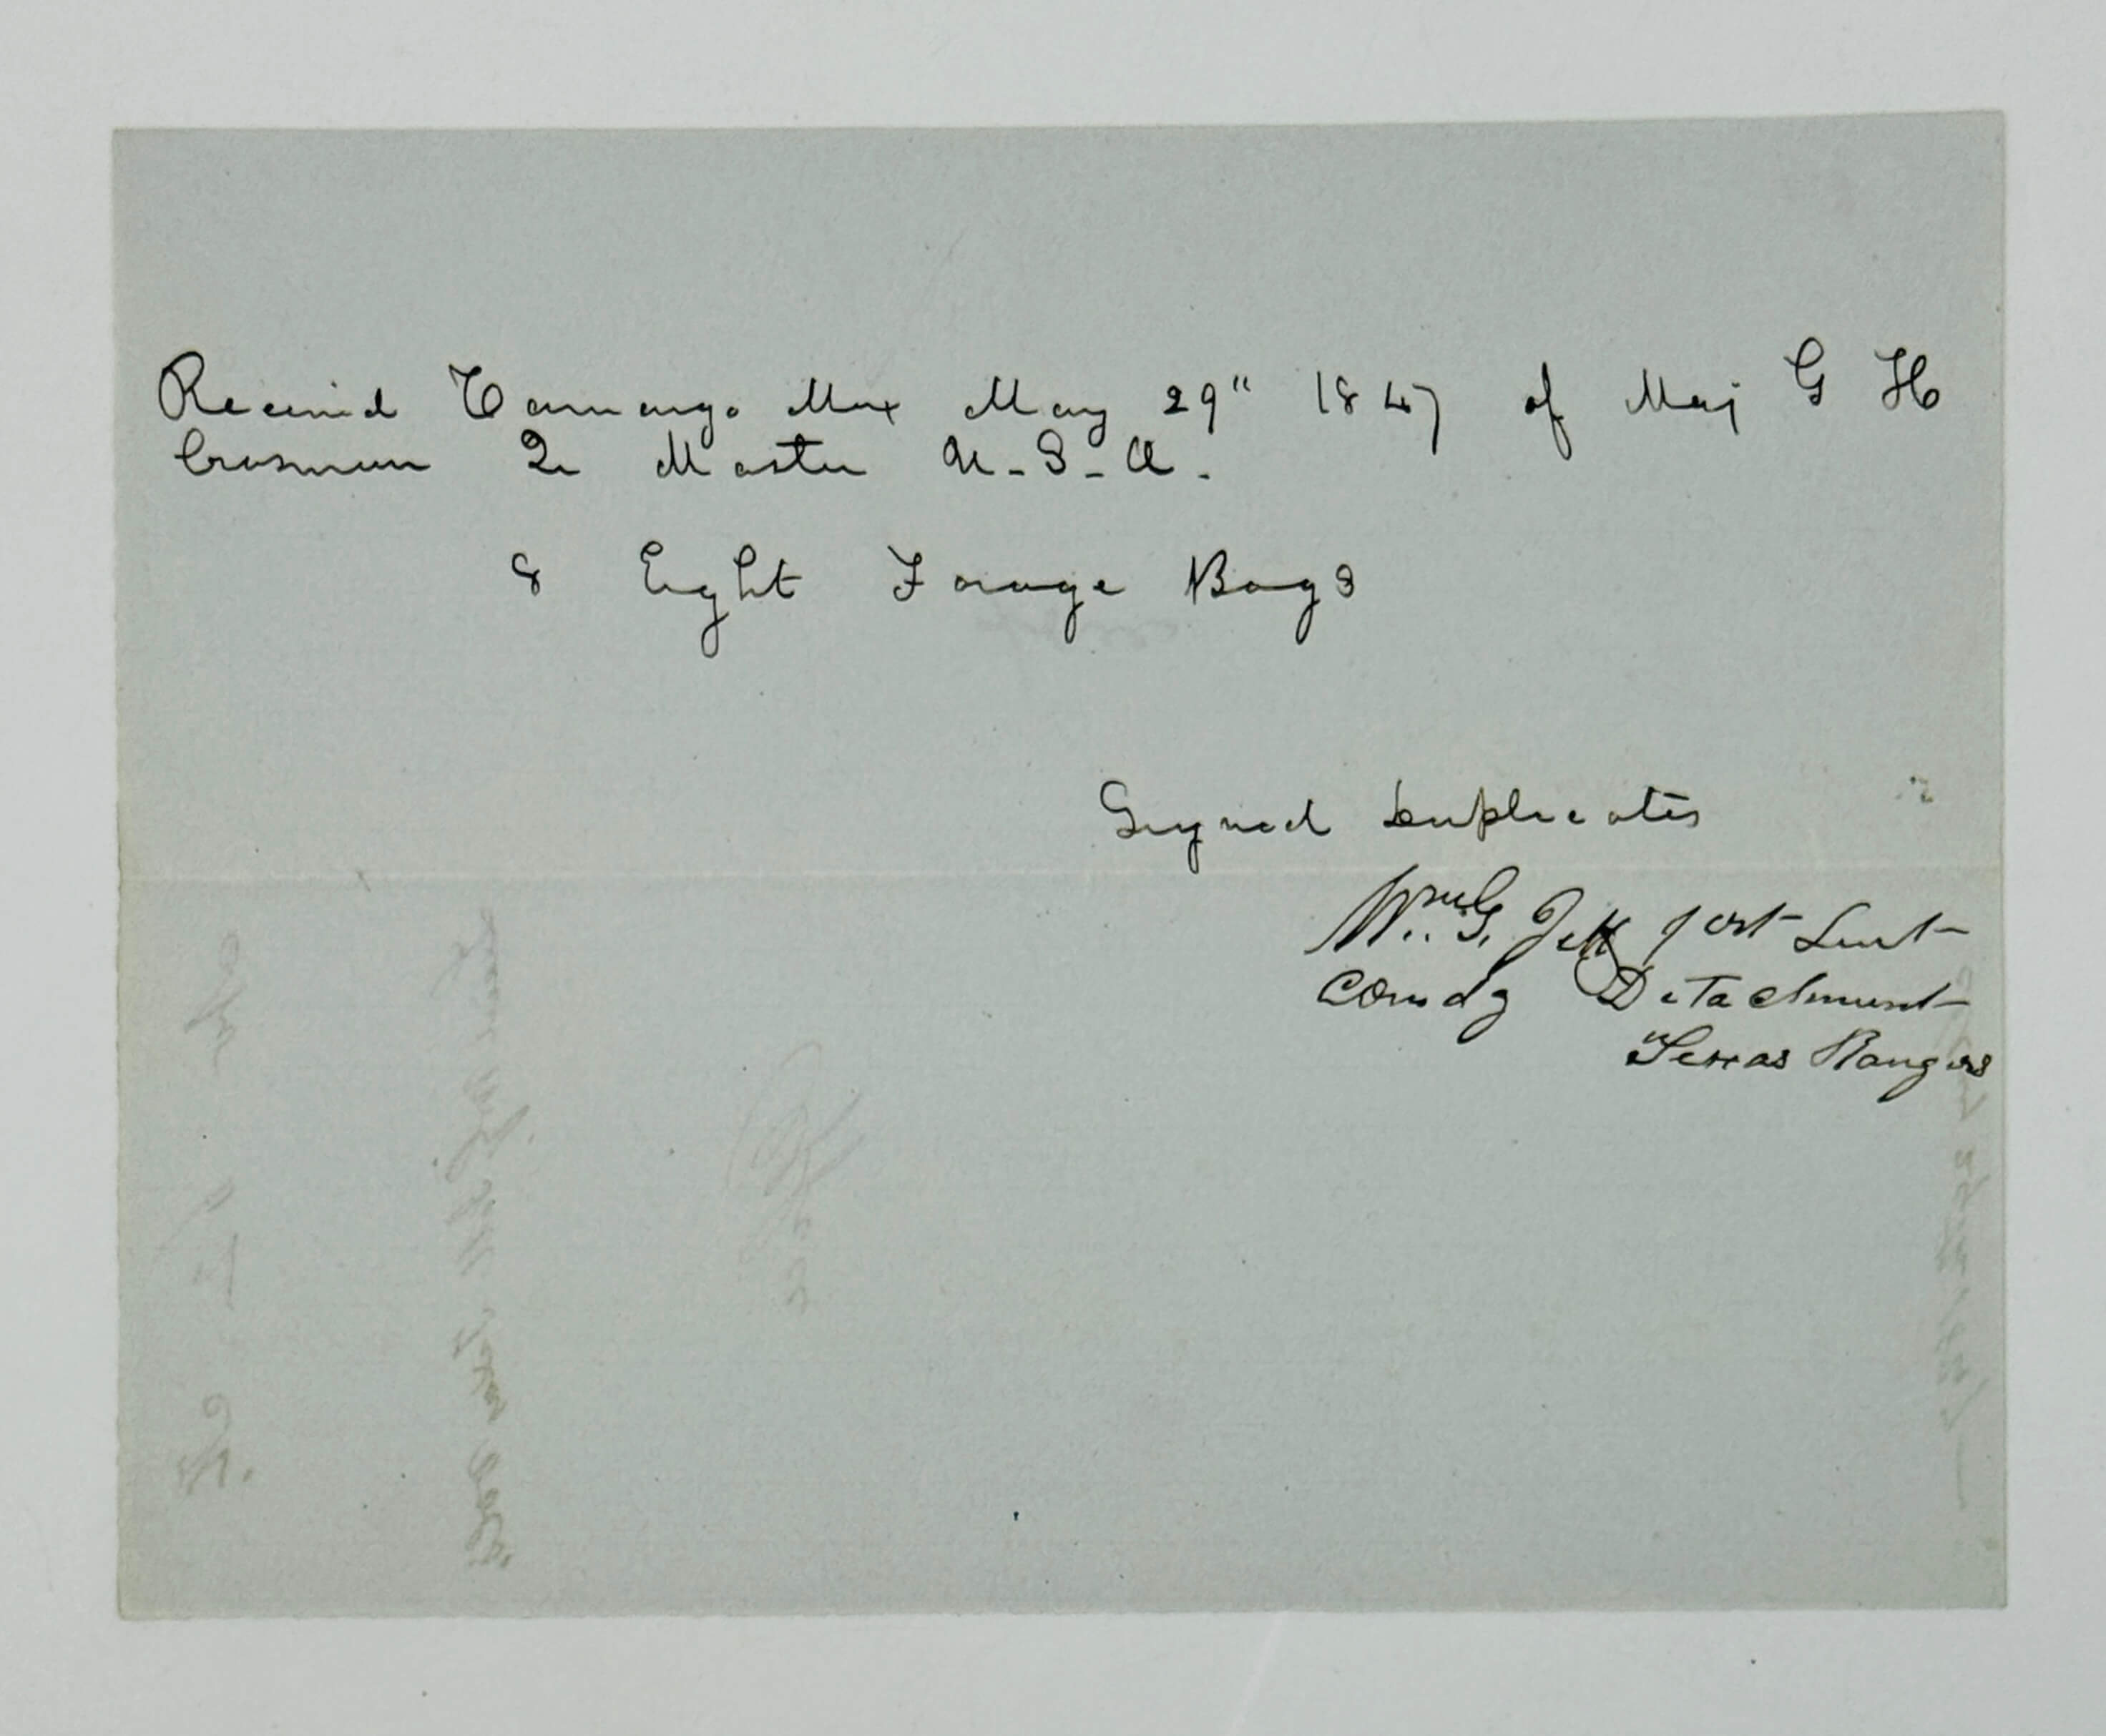 Received Camargo Mex May 29" 1847 of Maj G H
Crosman Qr Master U-S-A-
8 Eight Forage Bags
Signed Duplicates
Wm. G. Jett 1erst Leut
Comdg Detachment
Texas Rangers